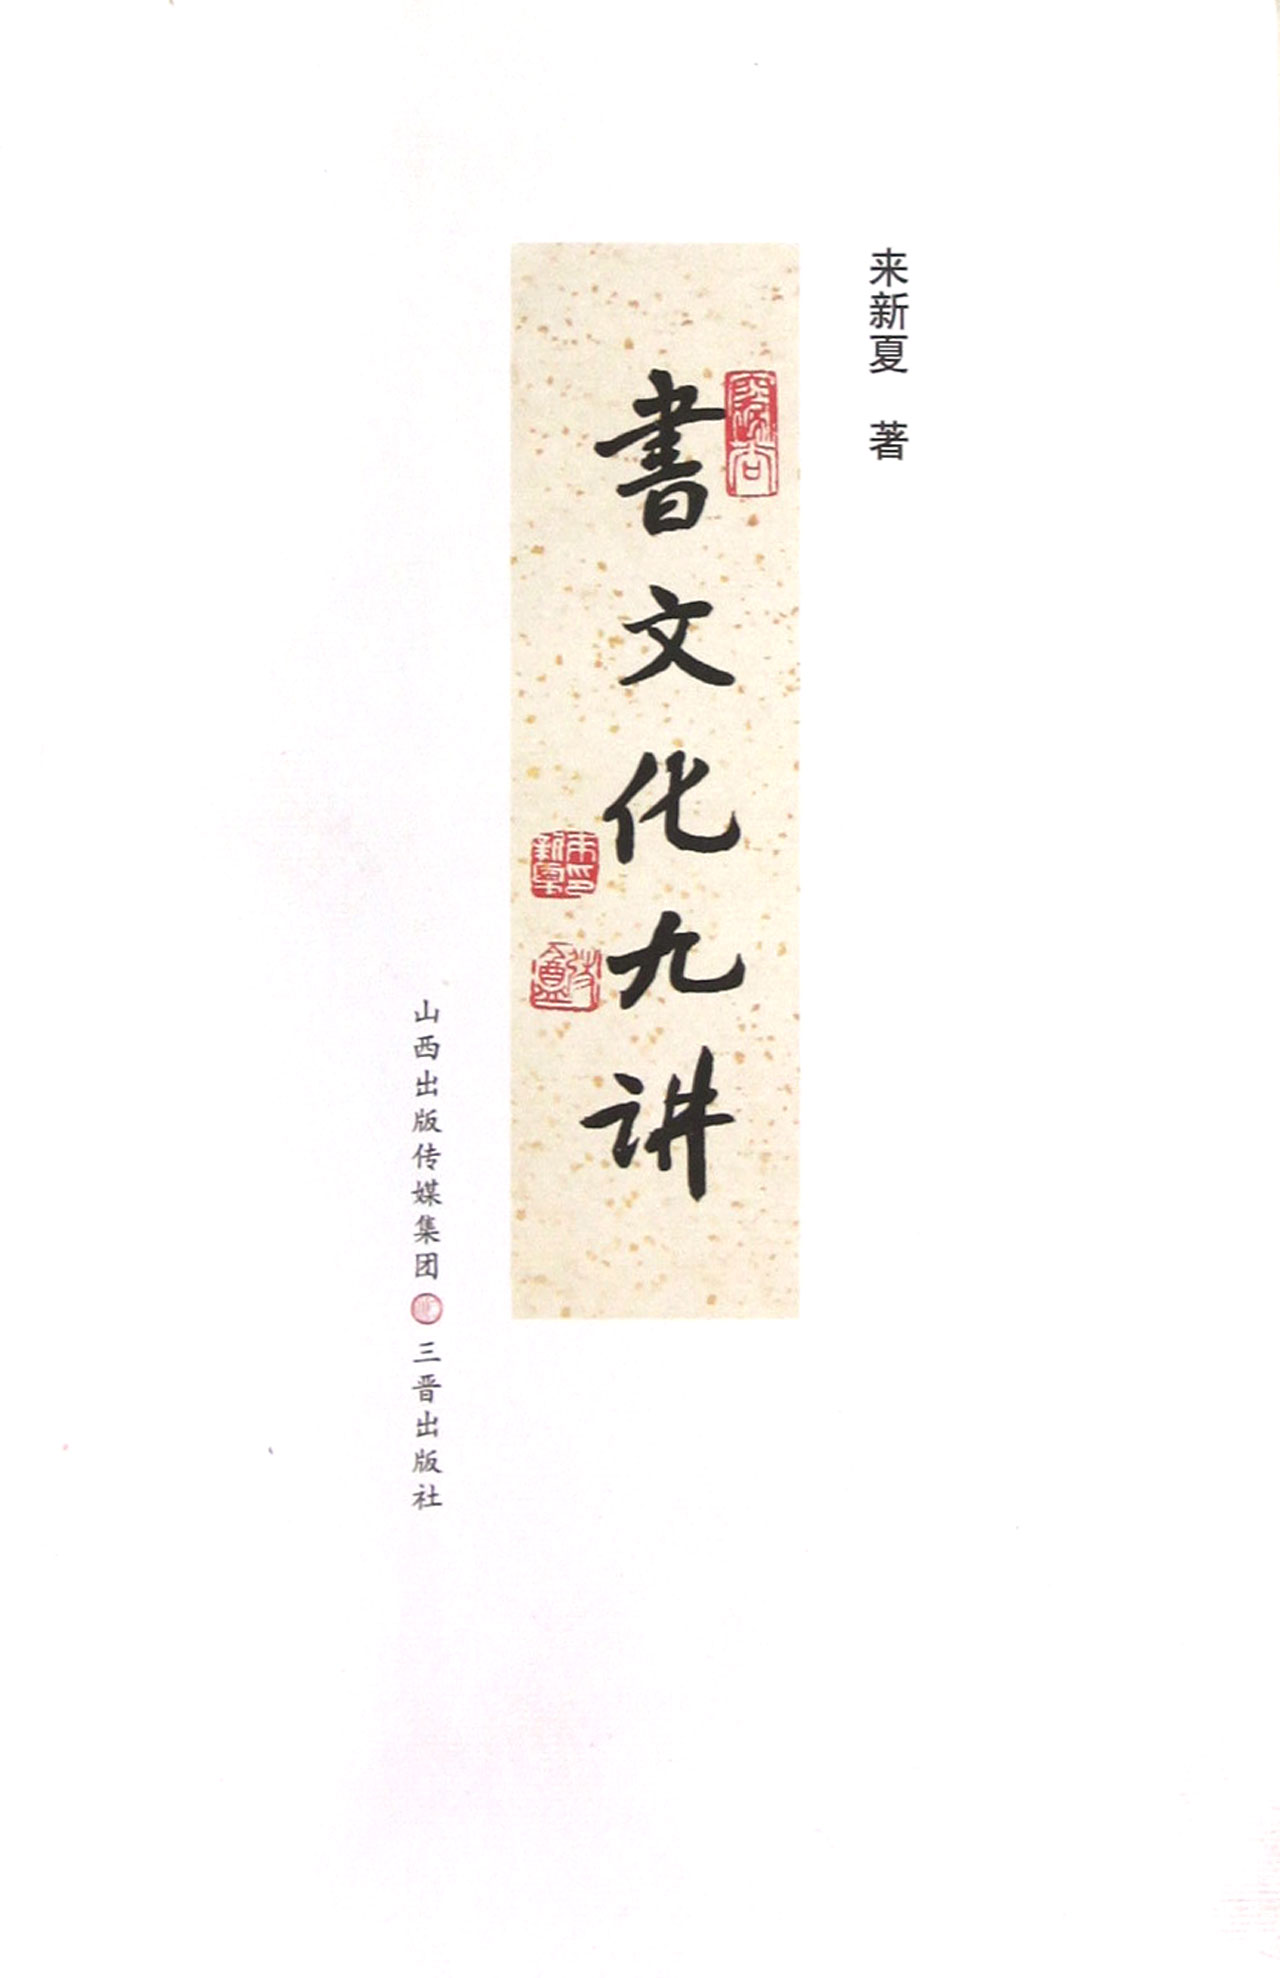 来新夏 著
書文化九讲
山西出版传媒集团
三晋出版社